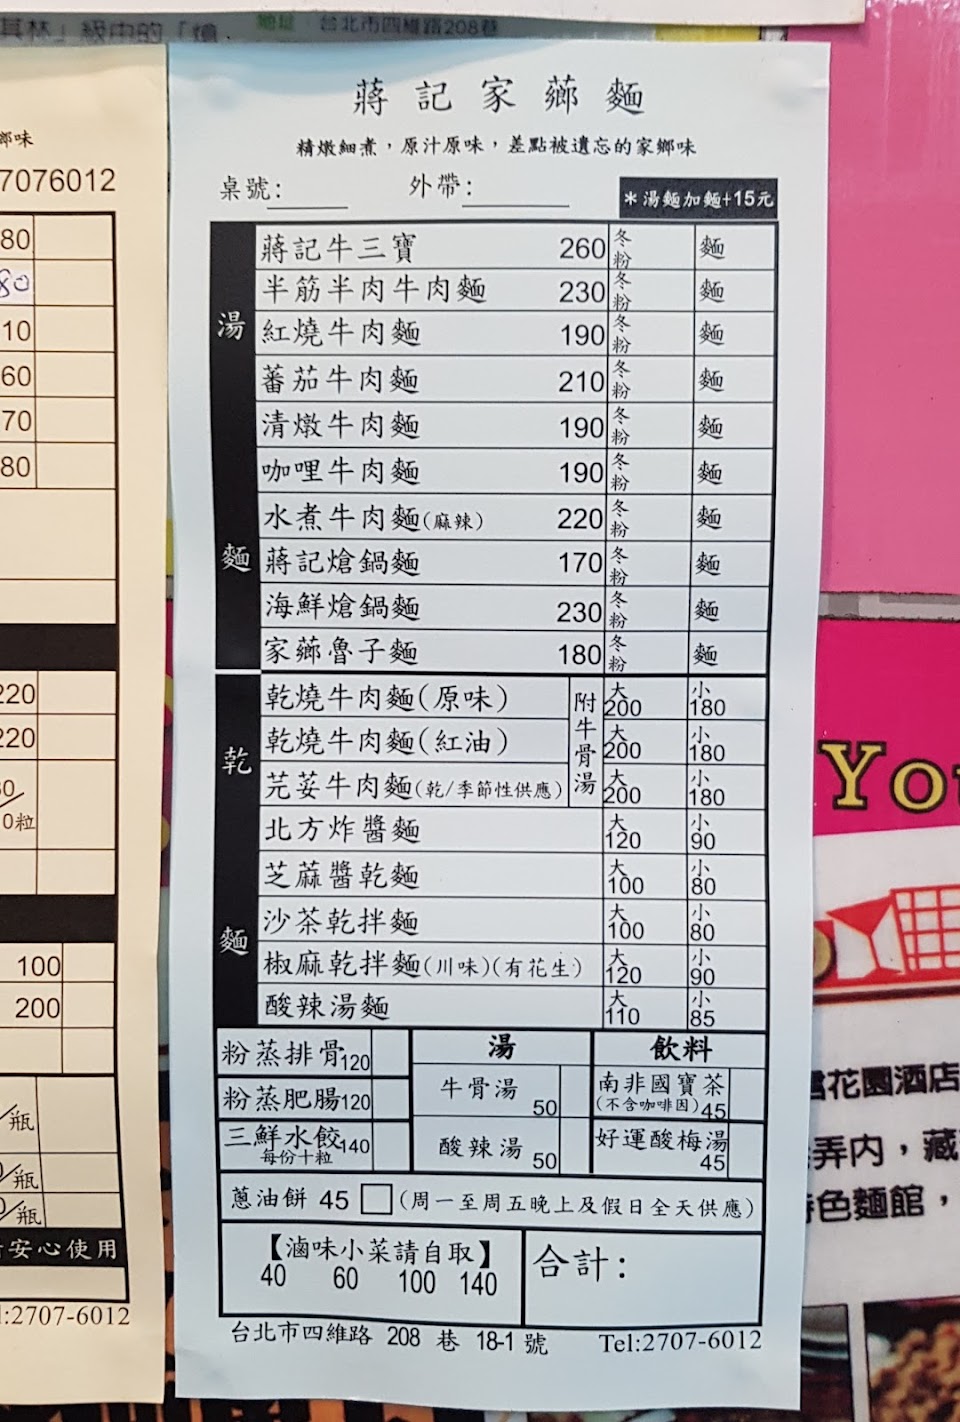 其林」級中的「燴
地址 台北市四維路208巷
蔣記家薌麵
精燉細煮，原汁原味，差點被遺忘的家鄉味
桌號： 外帶：
＊湯麵加麵+15元
湯麵
蔣記牛三寶 260 冬粉 麵
半筋半肉牛肉麵 230 冬粉 麵
紅燒牛肉麵 190 冬粉 麵
蕃茄牛肉麵 210 冬粉 麵
清燉牛肉麵 190 冬粉 麵
咖哩牛肉麵 190 冬粉 麵
水煮牛肉麵(麻辣) 220 冬粉 麵
蔣記熗鍋麵 170 冬粉 麵
海鮮熗鍋麵 230 冬粉 麵
家薌魯子麵 180 冬粉 麵
乾麵
乾燒牛肉麵(原味) 附牛骨湯 大200 小180
乾燒牛肉麵(紅油) 大200 小180
芫荽牛肉麵(乾/季節性供應) 大200 小180
北方炸醬麵 大120 小90
芝蔴醬乾麵 大100 小80
沙茶乾拌麵 大100 小80
椒麻乾拌麵(川味)(有花生) 大120 小90
酸辣湯麵 大110 小85
粉蒸排骨120
粉蒸肥腸120
三鮮水餃140
每份十粒
湯
牛骨湯 50
酸辣湯 50
飲料
南非國寶茶
(不含咖啡因)45
好運酸梅湯
45
蔥油餅 45 □ (周一至周五晚上及假日全天供應)
【滷味小菜請自取】
40 60 100 140
合計：
台北市四維路 208 巷 18-1 號 Tel:2707-6012
鄉味
7076012
80
80
10
60
70
80
220
220
0粒
100
200
/瓶
/瓶
/瓶
安心使用
l:2707-6012
You
花園酒店
弄內，藏
色麵館，